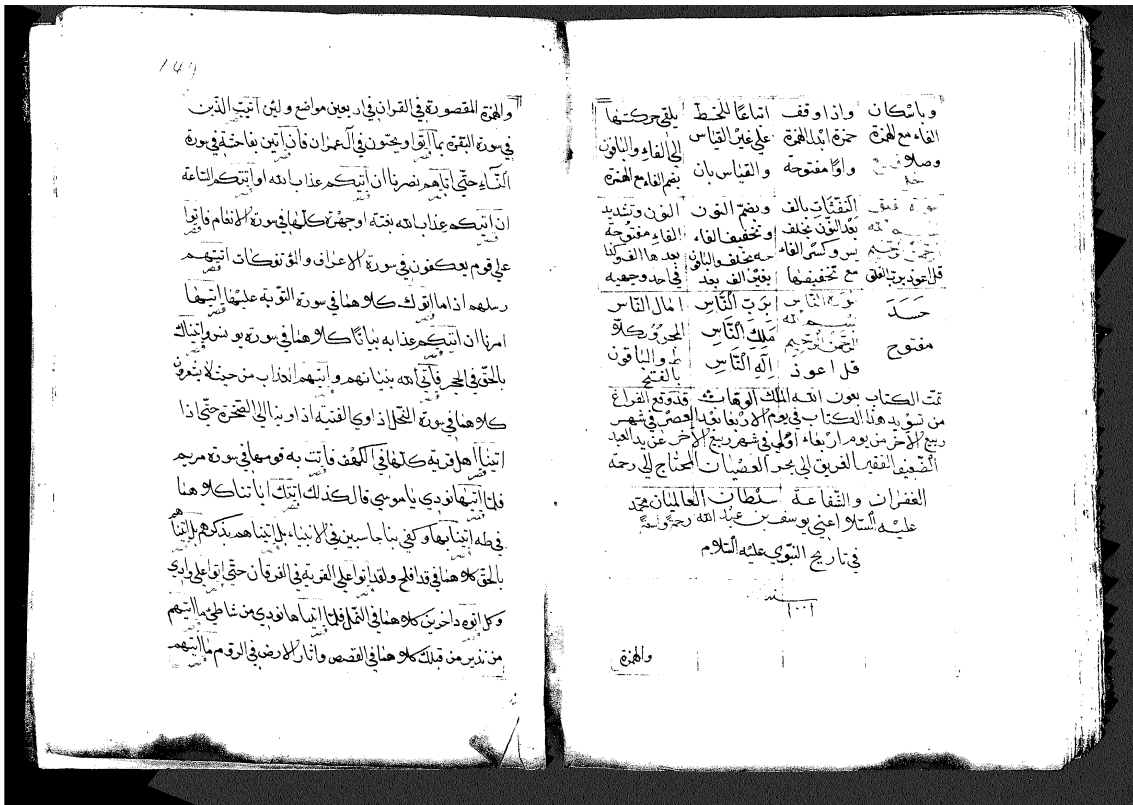 وباسكان واذا وقف اتباعا للخط يلقى حركتها
الفاء مع الهمزة حمزة ابدل الهمزة على غير القياس الى الفاء والباقون
واوا مفتوحة والقياس بان بضم الفاء مع الهمزة
النفثات بالف وبضم النون النون وتشديد
بعد النون بخلف وتخفيف الفاء الفاء مفتوحة
يس وكسر الفاء بعدها الف
قل اعوذ برب الفلق مع تخفيفها بغير الف بعد في احد وجهيه
حسد سورة الناس برب الناس امال الناس
بسم الله ملك الناس المجرور كلا
مفتوح الرحمن الرحيم اله الناس والباقون
قل اعوذ بالفتح
تمت الكتاب بعون الله الملك الوهاب قد وقع الفراغ
من تسويد هذا الكتاب في يوم الاربعا بعد العصر في شهر
ربيع الآخر من يوم اربعاء اولى في شهر ربيع الآخر عن يد العبد
الضعيف الفقير الغريق الى بحر العصيان المحتاج الى رحمة
الغفران والشفاعة سلطان العالميان محمد
عليه السلا اعني يوسف بن عبد الله رحمة واسعة
في تاريخ النبوي عليه السلام
سنه
١٠٠١
والهمزة
149
والهمزة المقصورة في القران في اربعين مواضع ولئن اتيت الذين
في سورة البقرة بما اتوا ويحبون في آل عمران فان اتين بفاحشة في سورة
النساء حتى اتاهم نصرنا ان اتيكم عذاب الله او اتتكم الساعة
ان اتيكم عذاب الله بغتة او جهرة كلها في سورة الانعام فاتوا
على قوم يعكفون في سورة الاعراف والمؤتفكات اتتهم
رسلهم اذا ما اتوك كلاهما في سورة التوبة عليها اتيها
امرنا ان اتيكم عذابه بياتا كلاهما في سورة يونس واتيناك
بالحق في الحجر فاتى الله بنيانهم واتيهم العذاب من حيث لا يشعرون
كلاهما في سورة النحل اذ اوى الفتية اذ اوينا الى الصخرة حتى اذا
اتيا اهل قرية كلها في الكهف فاتت به قومها في سورة مريم
فلما اتيها نودي يا موسى قال كذلك اتتك اياتنا كلاهما
في طه اتينا بها وكفى بنا حاسبين في الانبياء بل اتيناهم بذكرهم بل اتيناهم
بالحق كلاهما في قد افلح ولقد اتوا على القرية في الفرقان حتى اتوا على وادي
وكل اتوه داخرين كلاهما في النمل فلما اتيها نودي من شاطئ ما اتيهم
من نذير من قبلك كلاهما في القصص واثاروا الارض في الروم ما اتيهم